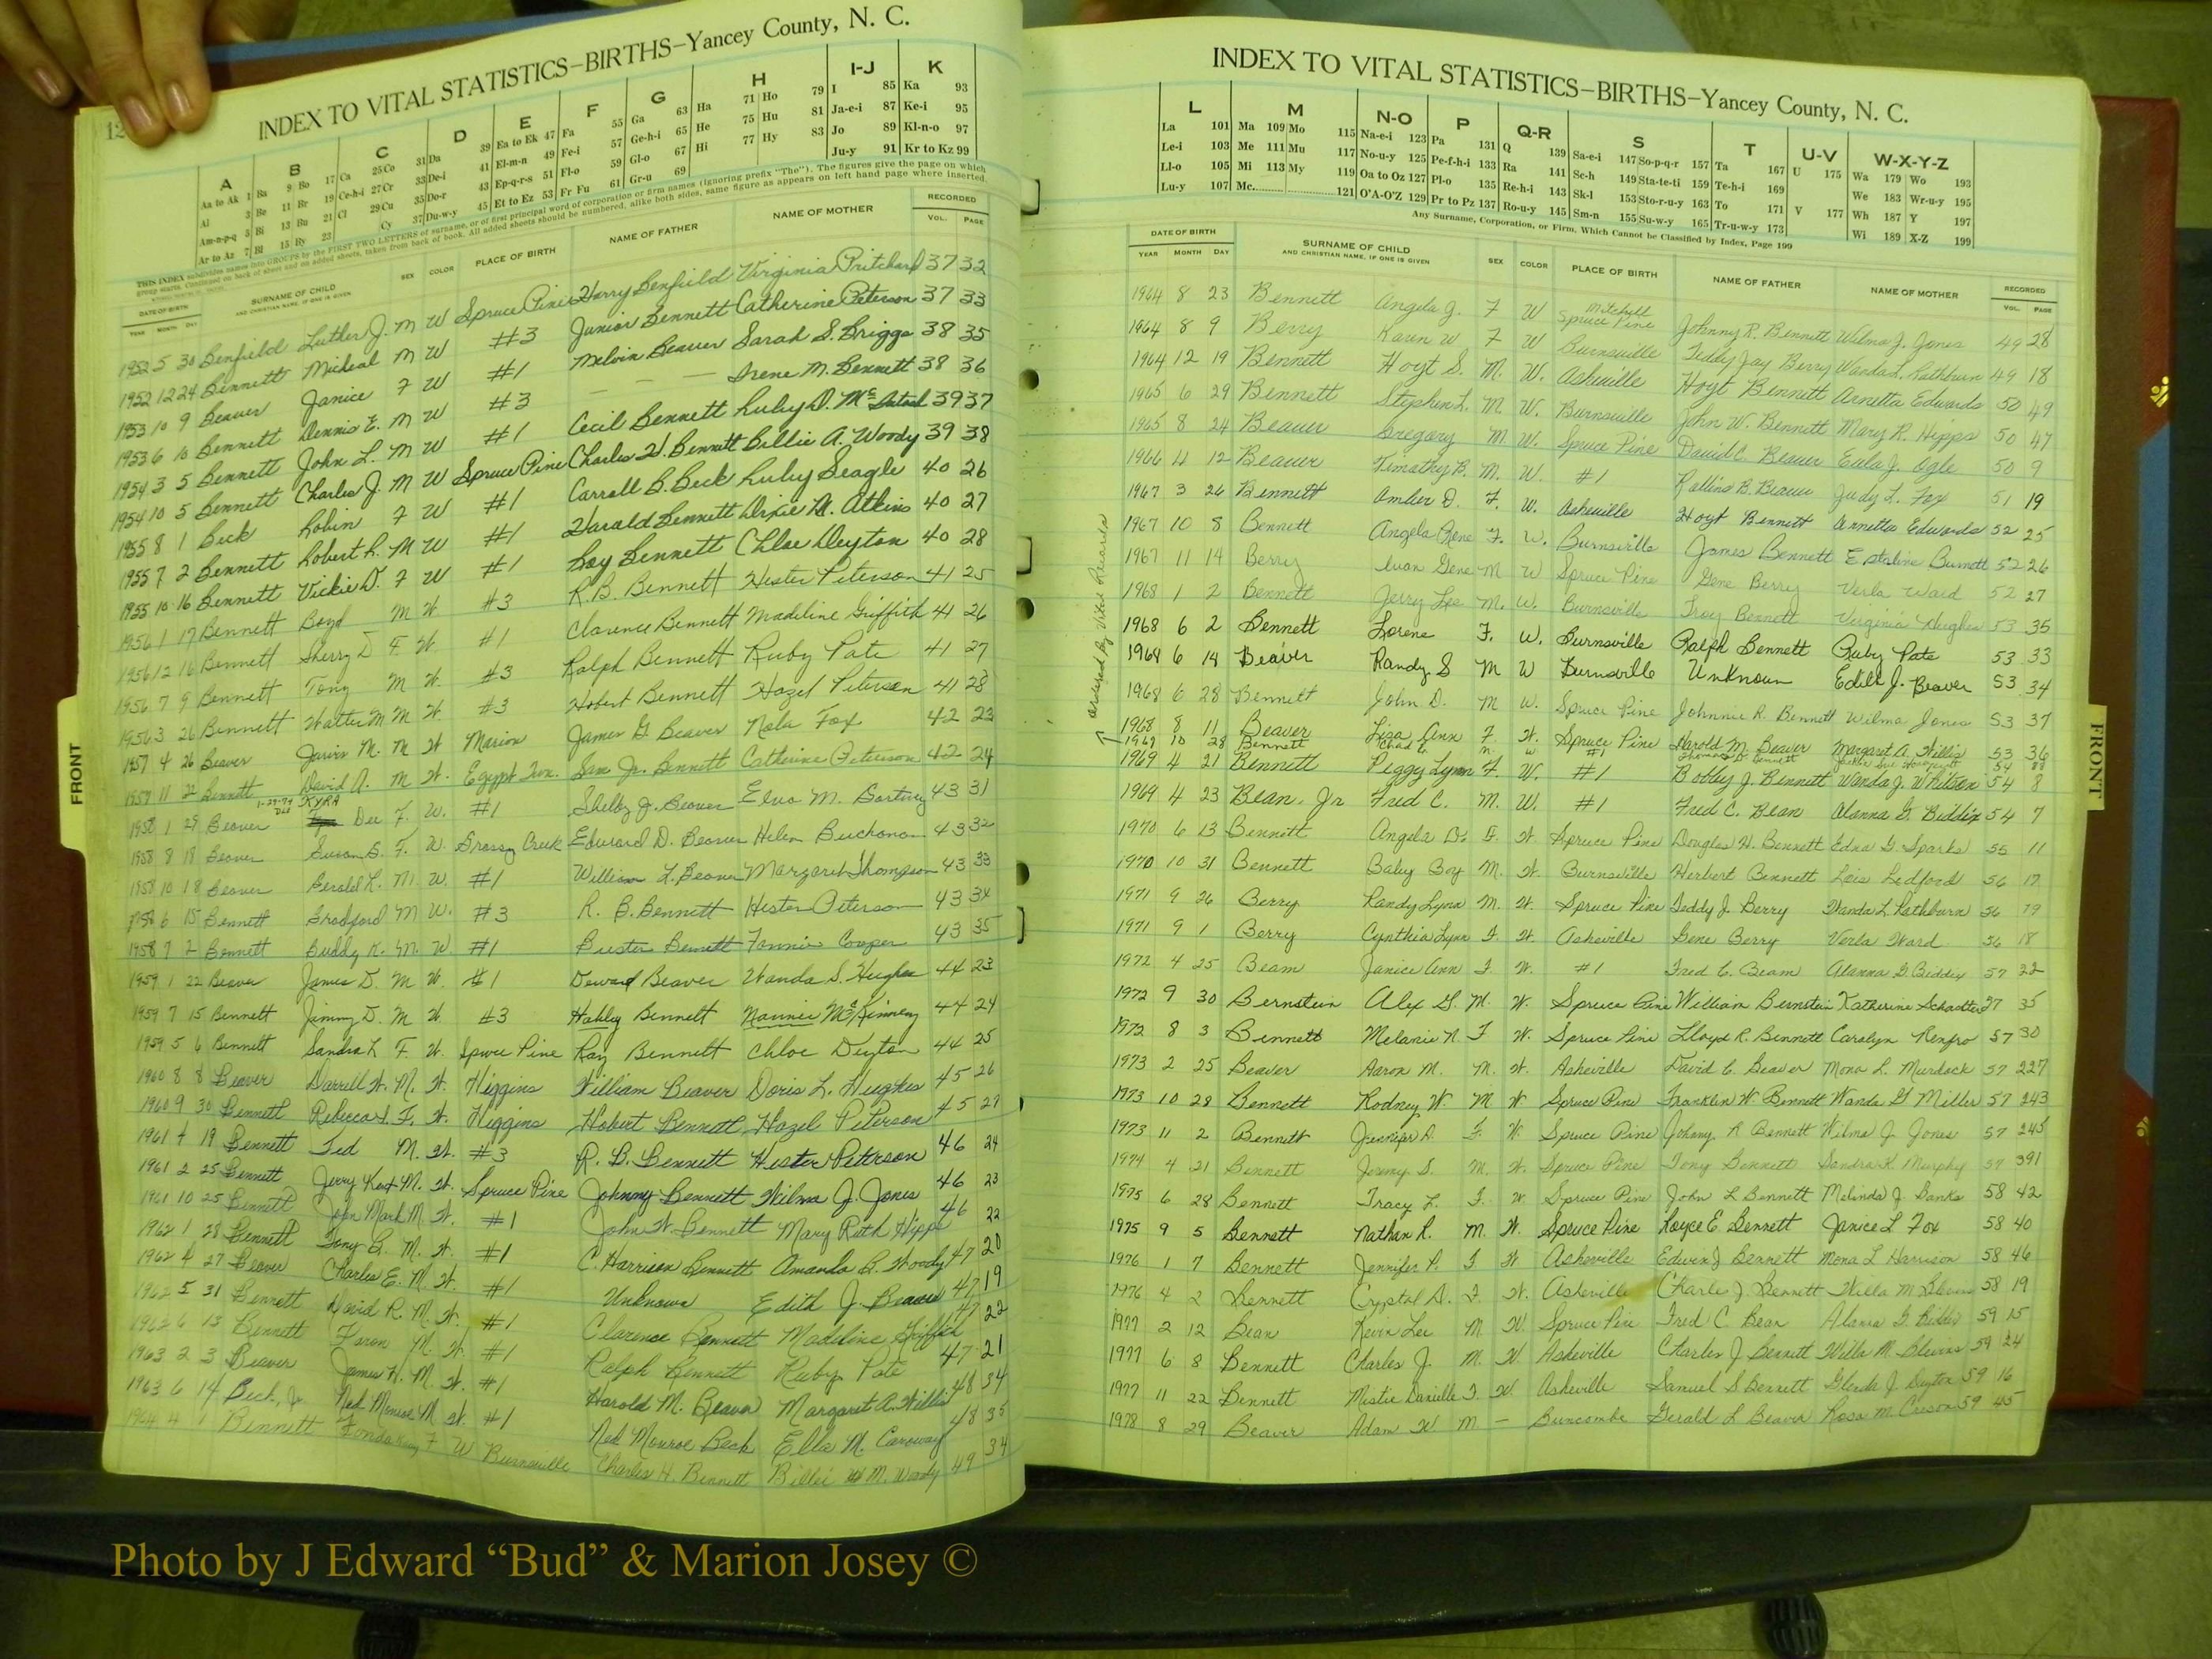 12
INDEX TO VITAL STATISTICS—BIRTHS—Yancey County, N. C.
A B C D E F G H I-J K
Aa to Ak 1 Ba 9 Bo 17 Ca 25 Co 31 Da 39 Ea to Ek 47 Fa 55 Ga 63 Ha 71 Ho 79 I 85 Ka 93
Al 3 Be 11 Br 19 Ce-h-i 27 Cr 33 De-i 41 El-m-n 49 Fe-i 57 Ge-h-i 65 He 75 Hu 81 Ja-e-i 87 Ke-i 95
Am-n-p-q 5 Bi 13 Bu 21 Cl 29 Cu 35 Do-r 43 Ep-q-r-s 51 Fl-o 59 Gl-o 67 Hi 77 Hy 83 Jo 89 Kl-n-o 97
Ar to Az 7 Bl 15 By 23 Cy 37 Du-w-y 45 Et to Ez 53 Fr Fu 61 Gr-u 69 Ju-y 91 Kr to Kz 99
THIS INDEX subdivides names into GROUPS by the FIRST TWO LETTERS of surname, or of first principal word of corporation or firm names (ignoring prefix "The"). The figures give the page on which
group starts. Continued on back of sheet and on added sheets, taken from back of book. All added sheets should be numbered, alike both sides, same figure as appears on left hand page where inserted.
DATE OF BIRTH SURNAME OF CHILD SEX COLOR PLACE OF BIRTH NAME OF FATHER NAME OF MOTHER RECORDED
YEAR MONTH DAY AND CHRISTIAN NAME, IF ONE IS GIVEN VOL. PAGE
1952 5 30 Benfield Luther J. M W Spruce Pine Harry Benfield Virginia Pritchard 37 32
1952 12 24 Bennett Micheal M W #3 Junior Bennett Catherine Peterson 37 33
1953 10 9 Beaver Janice F W #1 Melvin Beaver Sarah S. Briggs 38 35
1953 6 10 Bennett Dennis E. M W #3 — — — Irene M. Bennett 38 36
1954 3 5 Bennett John L. M W #1 Cecil Bennett Ruby D. 39 37
1954 10 5 Bennett Charles J. M W Spruce Pine Charles H. Bennett Billie A. Woody 39 38
1955 8 1 Beck Robin F W #1 Carroll B. Beck Ruby Seagle 40 26
1955 7 2 Bennett Robert R. M W #1 Harald Bennett Dixie M. Atkins 40 27
1955 10 16 Bennett Vickie D. F W #1 Roy Bennett Chloe Deyton 40 28
1956 1 17 Bennett Boyd M W #3 R.B. Bennett Hester Peterson 41 25
1956 12 16 Bennett Sherry D F. W. #1 Clarence Bennett Madeline Griffith 41 26
1956 7 9 Bennett Tony M W. #3 Ralph Bennett Ruby Pate 41 27
1956 3 26 Bennett Walter M M W. #3 Hobert Bennett Hazel Peterson 41 28
1957 4 26 Beaver Jarvis M. M W Marion James G. Beaver Nola Fox 42 23
1957 11 22 Bennett David A. M W. Egypt Twn. Sam Jr. Bennett Catherine Peterson 42 24
1-29-79 KYRA
1958 1 29 Beaver Dee F. W. #1 Shelby J. Beaver Elva M. 43 31
1958 8 18 Beaver Susan S. F. W. Grassy Creek Edward D. Beaver Helen Buchanan 43 32
1958 10 18 Beaver Gerald L. M. W. #1 William L. Beaver Margaret Thompson 43 33
1958 6 15 Bennett Bradford M W. #3 R. B. Bennett Hester Peterson 43 34
1958 7 2 Bennett Buddy R. M. W. #1 Buster Bennett Fannie Cooper 43 35
1959 1 22 Beaver James D. M W. #1 Beaver Wanda S. Hughes 44 23
1959 7 15 Bennett Jimmy D. M W. #3 Bennett Nannie McKinney 44 24
1959 5 6 Bennett Sandra L F. W. Spruce Pine Ray Bennett Chloe Deyton 44 25
1960 8 8 Beaver Darrell W. M. W. Higgins William Beaver Doris L. Hughes 45 26
1960 9 30 Bennett Rebecca F. W. Higgins Hobert Bennett Hazel Peterson 45 27
1961 4 19 Bennett Ted M. W. #3 R. B. Bennett Hester Peterson 46 24
1961 2 25 Bennett Jerry Kent M. W. Spruce Pine Johnny Bennett Wilma J. Jones 46 23
1961 10 25 Bennett John Mark M. W. #1 John W. Bennett Mary Ruth Hipps 46 22
1962 1 28 Bennett Tony B. M. W. #1 C. Harrison Bennett Amanda B. Woody 47 20
1962 4 27 Beaver Charles E. M. W. #1 Unknown Edith J. Beaver 47 19
1962 5 31 Bennett David R. M. W. #1 Clarence Bennett Madeline Griffith 47 22
1962 6 13 Bennett M. W. #1 Ralph Bennett Ruby Pate 47 21
1963 2 3 Beaver James H. M. W. #1 Harold M. Beaver Margaret A. Willis 48 34
1963 6 14 Beck, Jr Ned Monroe M. W. #1 Ned Monroe Beck Ella M. Caroway 48 35
1964 4 1 Bennett F W Burnsville Charles H. Bennett Billie M. Woody 49 34
FRONT
INDEX TO VITAL STATISTICS—BIRTHS—Yancey County, N. C.
L M N-O P Q-R S T U-V W-X-Y-Z
La 101 Ma 109 Mo 115 Na-e-i 123 Pa 131 Q 139 Sa-e-i 147 So-p-q-r 157 Ta 167 U 175 Wa 179 Wo 193
Le-i 103 Me 111 Mu 117 No-u-y 125 Pe-f-h-i 133 Ra 141 Sc-h 149 Sta-te-ti 159 Te-h-i 169 We 183 Wr-u-y 195
Ll-o 105 Mi 113 My 119 Oa to Oz 127 Pl-o 135 Re-h-i 143 Sk-l 153 Sto-r-u-y 163 To 171 V 177 Wh 187 Y 197
Lu-y 107 Mc 121 O'A-O'Z 129 Pr to Pz 137 Ro-u-y 145 Sm-n 155 Su-w-y 165 Tr-u-w-y 173 Wi 189 X-Z 199
Any Surname, Corporation, or Firm, Which Cannot be Classified by Index, Page 199
DATE OF BIRTH SURNAME OF CHILD SEX COLOR PLACE OF BIRTH NAME OF FATHER NAME OF MOTHER RECORDED
YEAR MONTH DAY AND CHRISTIAN NAME, IF ONE IS GIVEN VOL. PAGE
1964 8 23 Bennett Angela J. F W Mitchell Spruce Pine Johnny R. Bennett Wilma J. Jones 49 28
1964 8 9 Berry Karen W F W Burnsville Teddy Jay Berry Wanda L. Rathburn 49 18
1964 12 19 Bennett Hoyt S. M. W. Asheville Hoyt Bennett Arnetta Edwards 50 49
1965 6 29 Bennett Stephen L. M W. Burnsville John W. Bennett Mary R. Hipps 50 47
1965 8 24 Beaver Gregory M. W. Spruce Pine David C. Beaver Eula J. Ogle 50 9
1966 11 12 Beaver Timothy B. M. W. #1 Rollins B. Beaver Judy L. Fox 51 19
1967 3 26 Bennett Amber D. F. W. Asheville Hoyt Bennett Arnetta Edwards 52 25
1967 10 8 Bennett Angela Rene F. W. Burnsville James Bennett Estaline Burnett 52 26
1967 11 14 Berry Ivan Gene M W Spruce Pine Gene Berry Verla Ward 52 27
1968 1 2 Bennett Jerry Lee M. W. Burnsville Troy Bennett Virginia Hughes 53 35
1968 6 2 Bennett Lorene F. W. Burnsville Ralph Bennett Ruby Pate 53 33
1968 6 14 Beaver Randy S M W Burnsville Unknown Edith J. Beaver 53 34
1968 6 28 Bennett John D. M W. Spruce Pine Johnnie R. Bennett Wilma Jones 53 37
1968 8 11 Beaver Liza Ann F. W. Spruce Pine Harold M. Beaver Margaret A. Willis 53 36
1969 10 28 Bennett Chad M. W #1 Thomas D Bennett 54 88
1969 4 21 Bennett Peggy Lynn F. W. #1 Bobby J. Bennett Wanda J. Whitson 54 8
1969 4 23 Bean, Jr Fred C. M. W. #1 Fred C. Bean Alanna G. Biddix 54 7
1970 6 13 Bennett Angela F. W. Spruce Pine Douglas H. Bennett Edna G. Sparks 55 11
1970 10 31 Bennett Baby Boy M. W. Burnsville Herbert Bennett Lois Ledford 56 17
1971 9 26 Berry Randy Lynn M. W. Spruce Pine Teddy J. Berry Wanda L. Rathburn 56 19
1971 9 1 Berry Cynthia Lynn F. W. Asheville Gene Berry Verla Ward 56 18
1972 4 25 Beam Janice Ann F. W. #1 Fred C. Beam Alanna G. Biddix 57 22
1972 9 30 Bernstein Alex G. M. W. Spruce Pine William Bernstein Katherine 57 35
1972 8 3 Bennett Melanie N. F W. Spruce Pine Lloyd R. Bennett Carolyn Renfro 57 30
1973 2 25 Beaver Aaron M. M. W. Asheville David C. Beaver Mona L. Murdock 57 227
1973 10 28 Bennett Rodney W. M W Spruce Pine Franklin W Bennett Wanda G Miller 57 243
1973 11 2 Bennett Jennifer A. F. W. Spruce Pine Johnny R Bennett Wilma J. Jones 57 245
1974 4 21 Bennett Jeremy S. M. W. Spruce Pine Tony Bennett Sandra K. Murphy 57 391
1975 6 28 Bennett Tracy L. F. W Spruce Pine John L Bennett Melinda J. Banks 58 42
1975 9 5 Bennett Nathan R. M. W. Spruce Pine Royce E. Bennett Janice L Fox 58 40
1976 1 7 Bennett Jennifer P. F W Asheville Edwin J Bennett Mona L Harrison 58 46
1976 4 2 Bennett Crystal A. F. W. Asheville Charles J Bennett Willa M Blevins 58 19
1977 2 12 Bean Kevin Lee M W. Spruce Pine Fred C. Bean Alana G. Biddix 59 15
1977 6 8 Bennett Charles J. M. W Asheville Charles J Bennett Willa M Blevins 59 24
1977 11 22 Bennett Mistie Danielle F. W. Asheville Samuel S Bennett Glenda J. Deyton 59 16
1978 8 29 Beaver Adam W M — Buncombe Gerald L Beaver Rosa M. 59 45
ordered by Vital Records
FRONT
Photo by J Edward “Bud” & Marion Josey ©